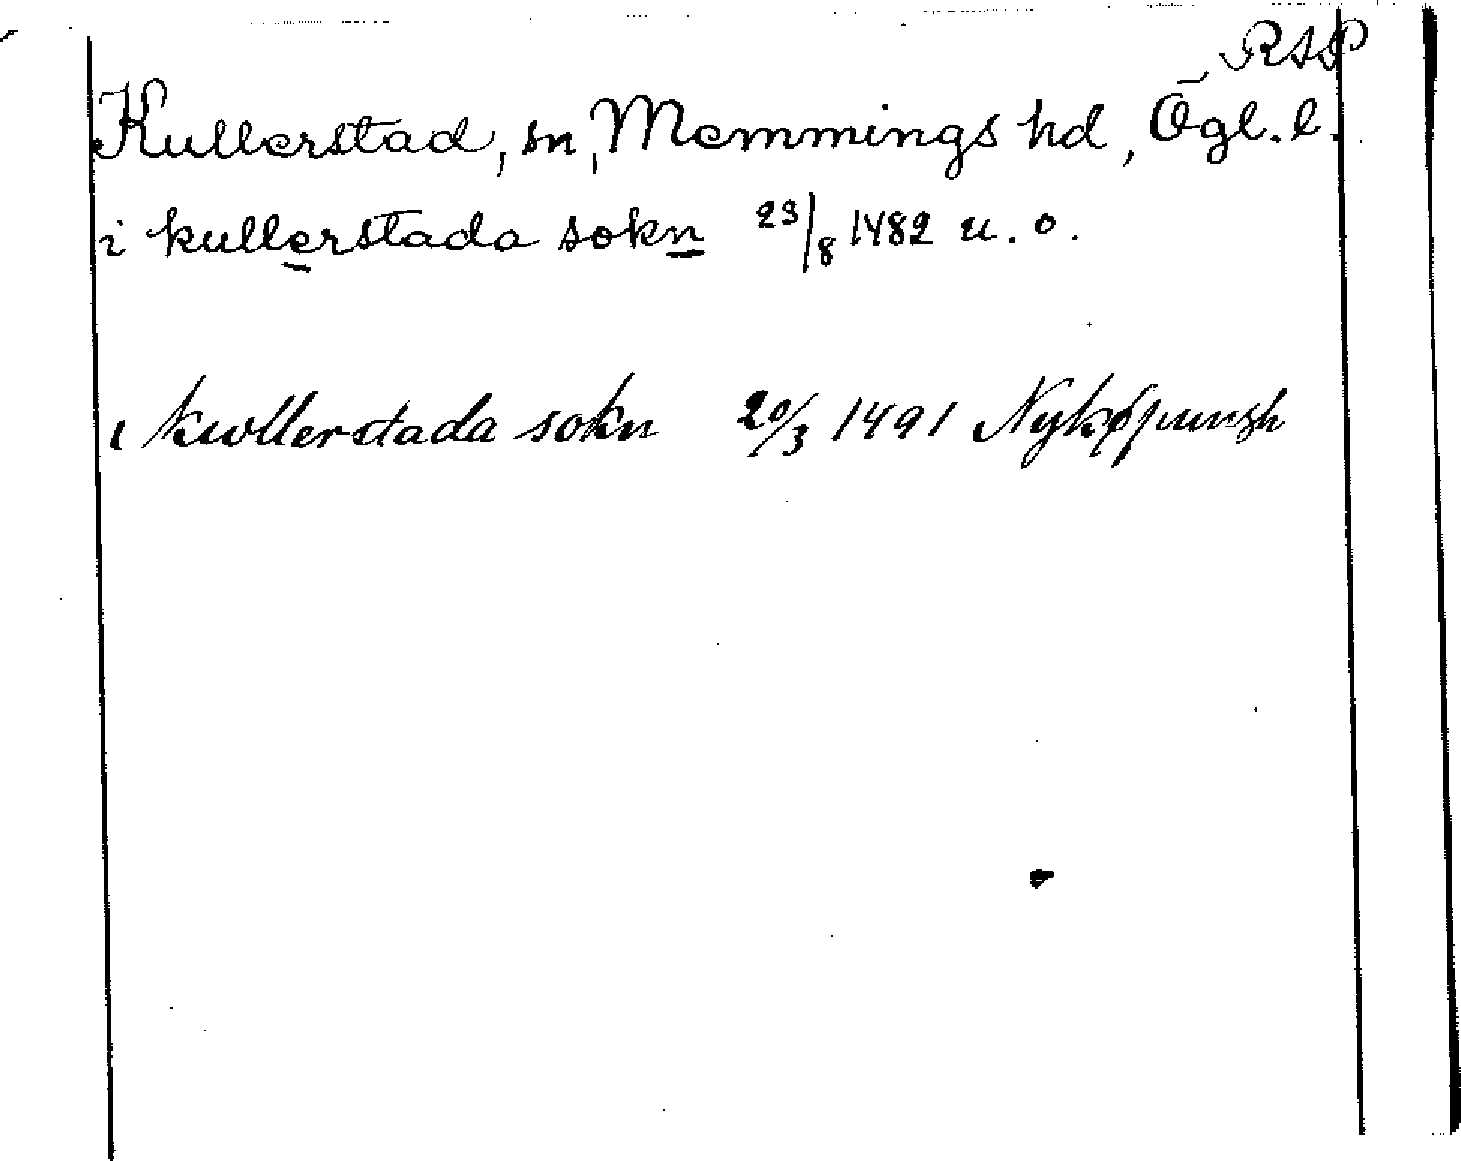 RAP
Kullerstad, sn, Memmings hd, Ögl. l.
i kullerstada sokn 23/8 1482 u. o.
i kwllerstada sokn 20/3 1491 Nyköpungh